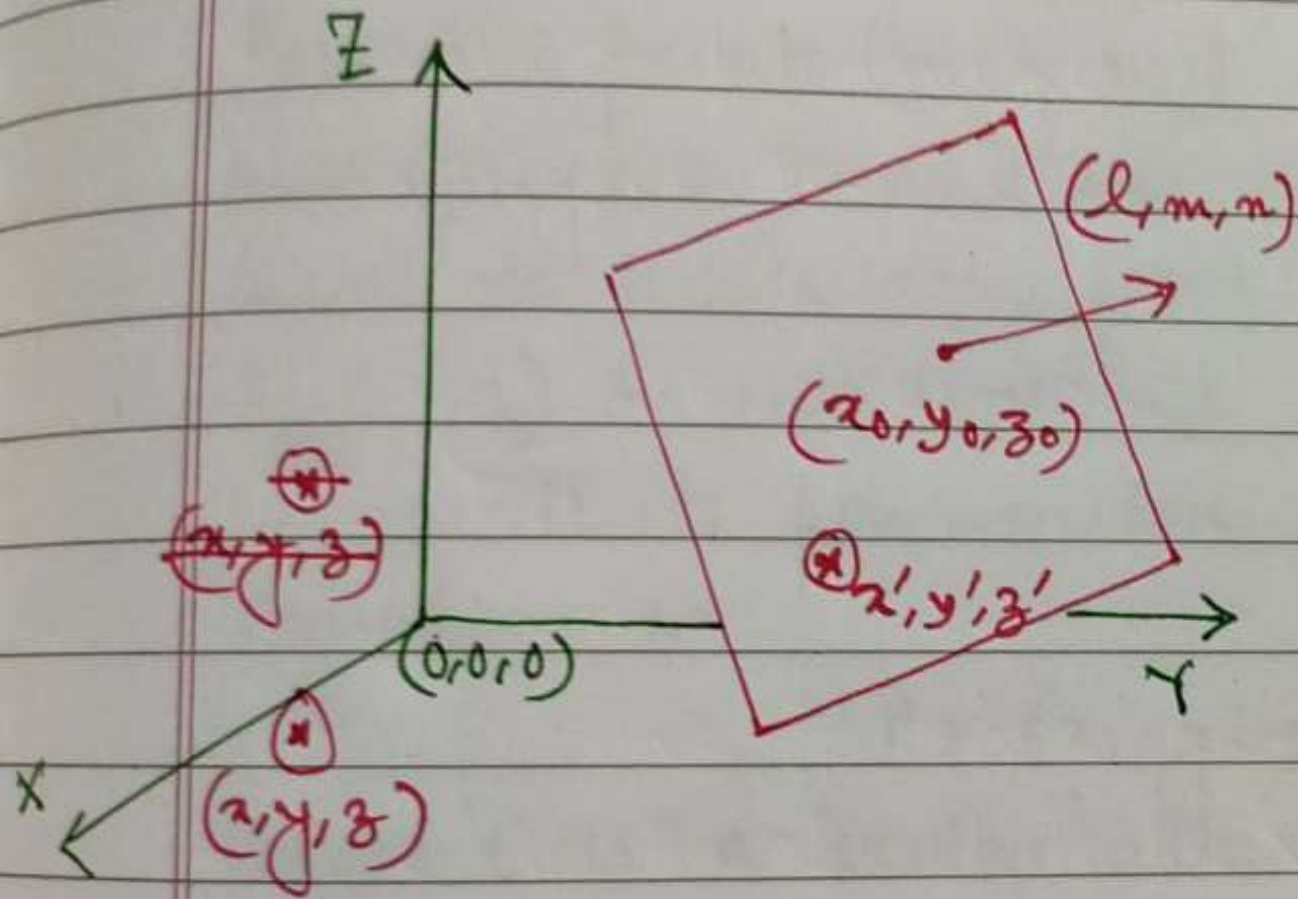 Z
(l, m, n)
(x0, y0, z0)
(x, y, z)
x', y', z'
(0, 0, 0)
Y
X
(x, y, z)